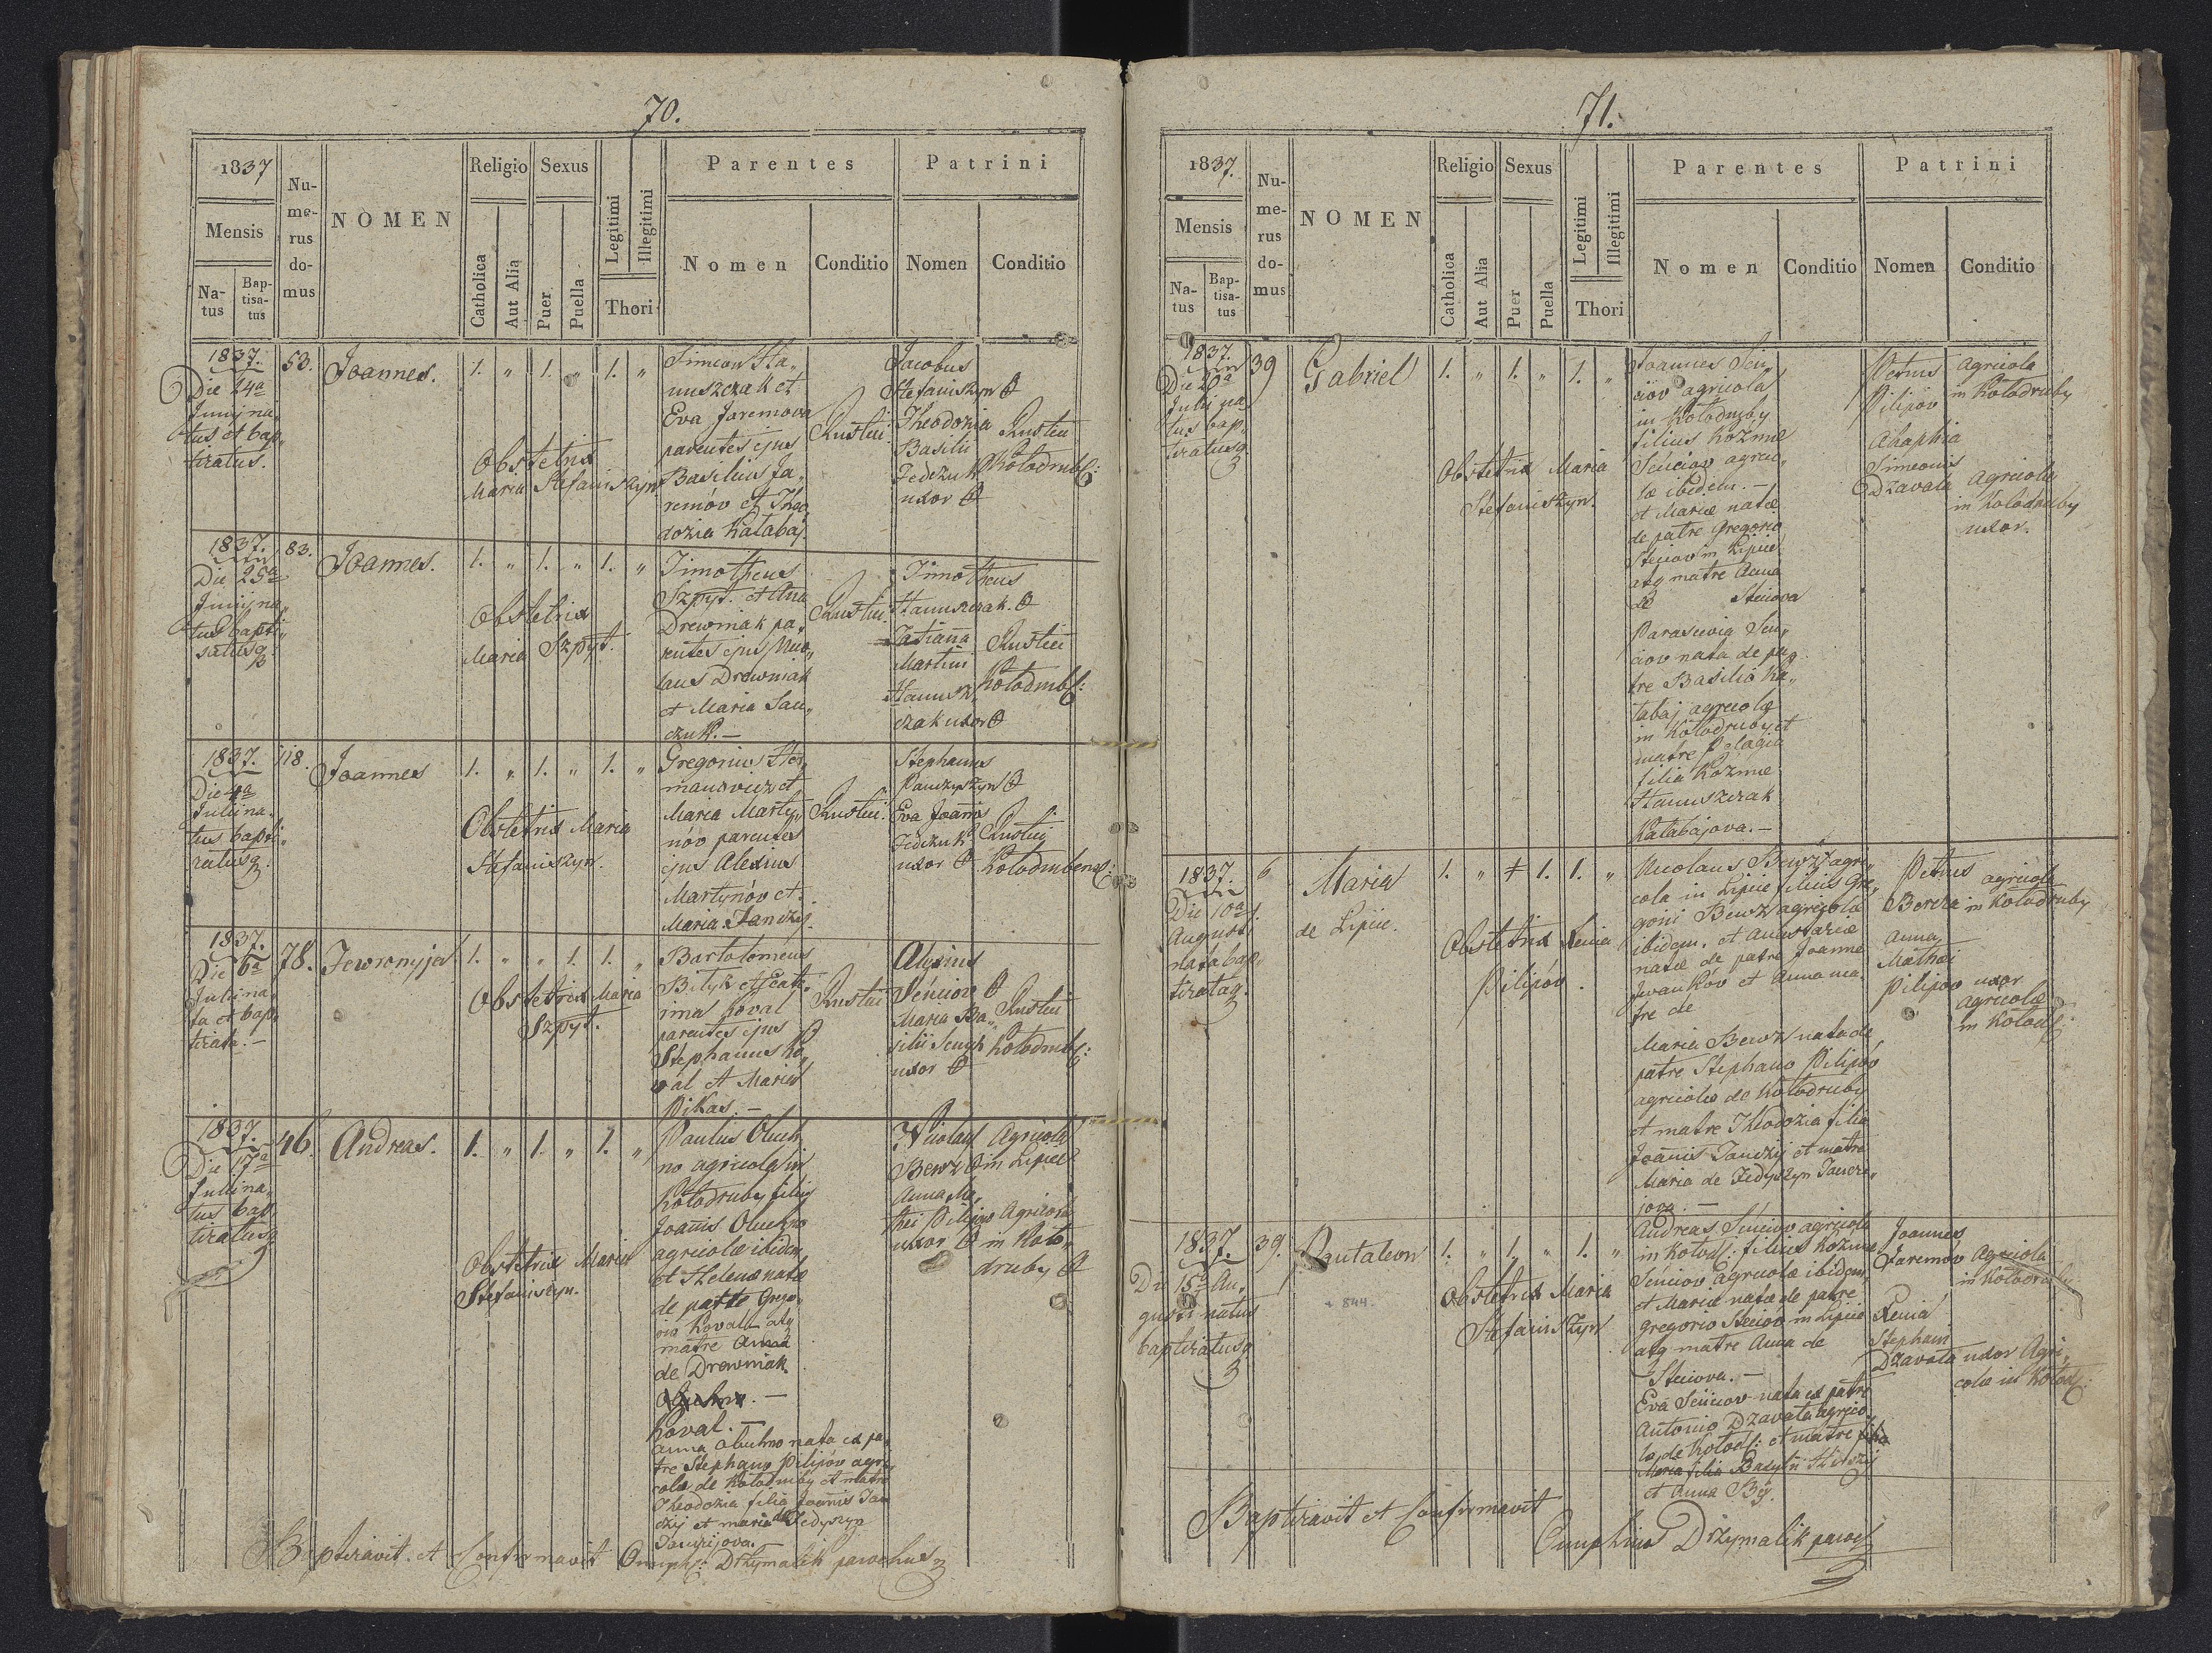 70.
1837
Mensis
Na-
tus
Bap-
tisa-
tus
Nu-
me-
rus
do-
mus
NOMEN
Religio
Catholica
Aut Alia
Sexus
Puer
Puella
Legitimi
Illegitimi
Thori
Parentes
Nomen
Conditio
Patrini
Nomen
Conditio
1837.
Die 24a
Junij na„
tus et bap„
tizatus.
53.
Joannes.
1. „ 1. „ 1. „
Obstetrix
Maria Stefaniszyn
Simeon Ha„
nuszczak et
Eva Jaremova
parentes ejus
Basilius Ja„
remóv et Theo„
dozia Kałabaj
Rustici
Jacobus
Stefaniszyn
Theodozia
Basilii
Fedczuk
uxor
Rustici
Kołodrub:
1837.
Die 25a
Junij na„
tus bapti„
satusq
83.
Joannes.
1. „ 1. „ 1. „
Obstetrix
Maria Szpyt.
Timotheus
Szpyt. et Anna
Drewniak pa„
rentes ejus Nico„
laus Drewniak
et Maria San„
czuk. —
Rustici
Timotheus
Hanuszczak.
Tatianna
Martini
Hanusz„
czak uxor
Rustici
Kołodrub:
1837.
Die 4a
Julii na„
tus bapti„
zatusq
118.
Joannes
1. „ 1. „ 1. „
Obstetrix Maria
Stefaniszyn.
Gregorius Her„
manovicz et
Maria Marty„
nóv parentes
ejus Alexius
Martynóv et
Maria Janczy.
Rustici.
Stephanus
Panczyszyn
Eva Joannis
Fedczuk
uxor
Rustici
Kołodrubens:
1837.
Die 6a
Julii na„
ta et bap„
tizata. —
78.
Jewronyja
1. „ „ 1. 1. „
Obstetrix Maria
Szpyt.
Bartolomeus
Bilyk et Cath„
rina Koval
parentes ejus
Stephanus Ko„
val et Maria
Pikas. —
Rustici
Alexius
Senciov
Maria Ba„
silii Senyk
uxor
Rustici
Kołodrub:
1837.
Die 17a
Julii na„
tus bap„
tizatusq
46.
Andreas.
1. „ 1. „ 1. „
Obstetrix Maria
Stefaniszyn.
Paulus Oluch„
no agricola in
Kołodruby filius
Joannis Oluchno
agricolæ ibidem
et Helenæ natæ
de patre Grego„
rio Koval atq
matre Anna
de Drewniak
Koval. —
Anna Oluchno nata ex pa„
tre Stephano Pilipóv agri„
cola de Kołodruby et matre
Theodozia filia Joannis Jan„
czij et maria de Fedyszyn
Janczijova.
Nicolaus
Bewz
Anna Ma„
thei Pilipov
uxor
Agricola
in Lipice
Agricola
in Koło„
druby
Baptizavit et Confirmavit Onuph: Drzymalik parochus
71.
1837.
Mensis
Na-
tus
Bap-
tisa-
tus
Nu-
me-
rus
do-
mus
NOMEN
Religio
Catholica
Aut Alia
Sexus
Puer
Puella
Legitimi
Illegitimi
Thori
Parentes
Nomen
Conditio
Patrini
Nomen
Conditio
1837.
Die 20a
Julij na„
tus bap„
tizatusq
39
Gabriel
1. „ 1. „ 1. „
Obstetrix Maria
Stefaniszyn.
Joannes Sen„
ciov agricola
in Kołodruby
filius Kozmæ
Senciov agrico„
læ ibidem. —
et Mariæ natæ
de patre Gregorio
Steciov in Lipice
atq matre Anna
de Steciova
Parascevia Sen„
ciov nata de pa„
tre Basilio Ka„
łabaj agricola
in Kołodruby et
matre Pelagia
filia Kozmæ
Hanuszczak
Kałabajova. —
Petrus
Pilipóv
Ahaphia
Simeonis
Dzavala
agricola
in Kołodruby
agricola
in Kołodruby
uxor.
1837.
Die 10a
Augusti
nata bap„
tizataq.
6
Maria
de Lipice.
1. „ 1. 1. „
Obstetrix Xenia
Pilipóv.
Nicolaus Bewz agri„
cola in Lipice filius Gre„
gorii Bewz agricolæ
ibidem. et Anastasiæ
natæ de patre Joanne
Jwankóv et Anna ma„
tre de
Maria Bewz nata de
patre Stephano Pilipóv
agricola de Kołodruby
et matre Theodozia filia
Joannis Janczij et matre
Maria de Fedyszyn Jancze„
jova. —
Petrus
Borcza
Anna
Mathei
Pilipóv uxor
agricola
in Kołodruby
agricolæ
in Kołod:
1837.
Die 15a Au„
gusti natus
baptizatusq
39.
Pantaleon
+ 844.
1. „ 1. „ 1. „
Obstetrix Maria
Stefaniszyn
Andreas Senciov agricola
in Kołod: filius Kozmæ
Senciov agricolæ ibidem,
et Mariæ natæ de patre
Gregorio Steciov in Lipice
atq matre Anna de
Steciova. —
Eva Senciov nata ex patre
Antonio Dzavala agrico„
la de Kołod: et matre
Maria filia Basylii
et Anna Bij.
Joannes
Jaremóv
Xenia
Stephani
Dzavala uxor
Agricola
in Kołodruby
Agri„
cola in Kołod:
Baptizavit et Confirmavit
Onuphrius Drzymalik paroch